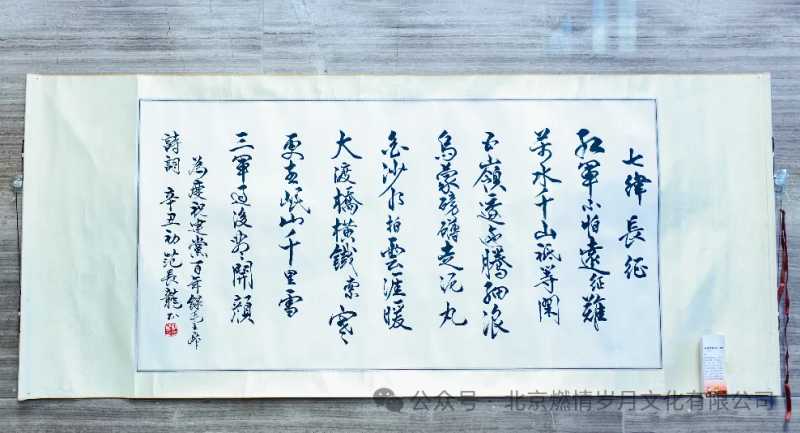 七律長征
紅軍不怕遠征難
萬水千山祇等閑
五嶺逶迤騰細浪
烏蒙磅礴走泥丸
金沙水拍雲涯暖
大渡橋橫鐵索寒
更喜岷山千里雪
三軍過後盡開顏
為慶祝建黨百年錄毛主席
詩詞 辛丑初范長龍書
公众号 · 北京燃情岁月文化有限公司